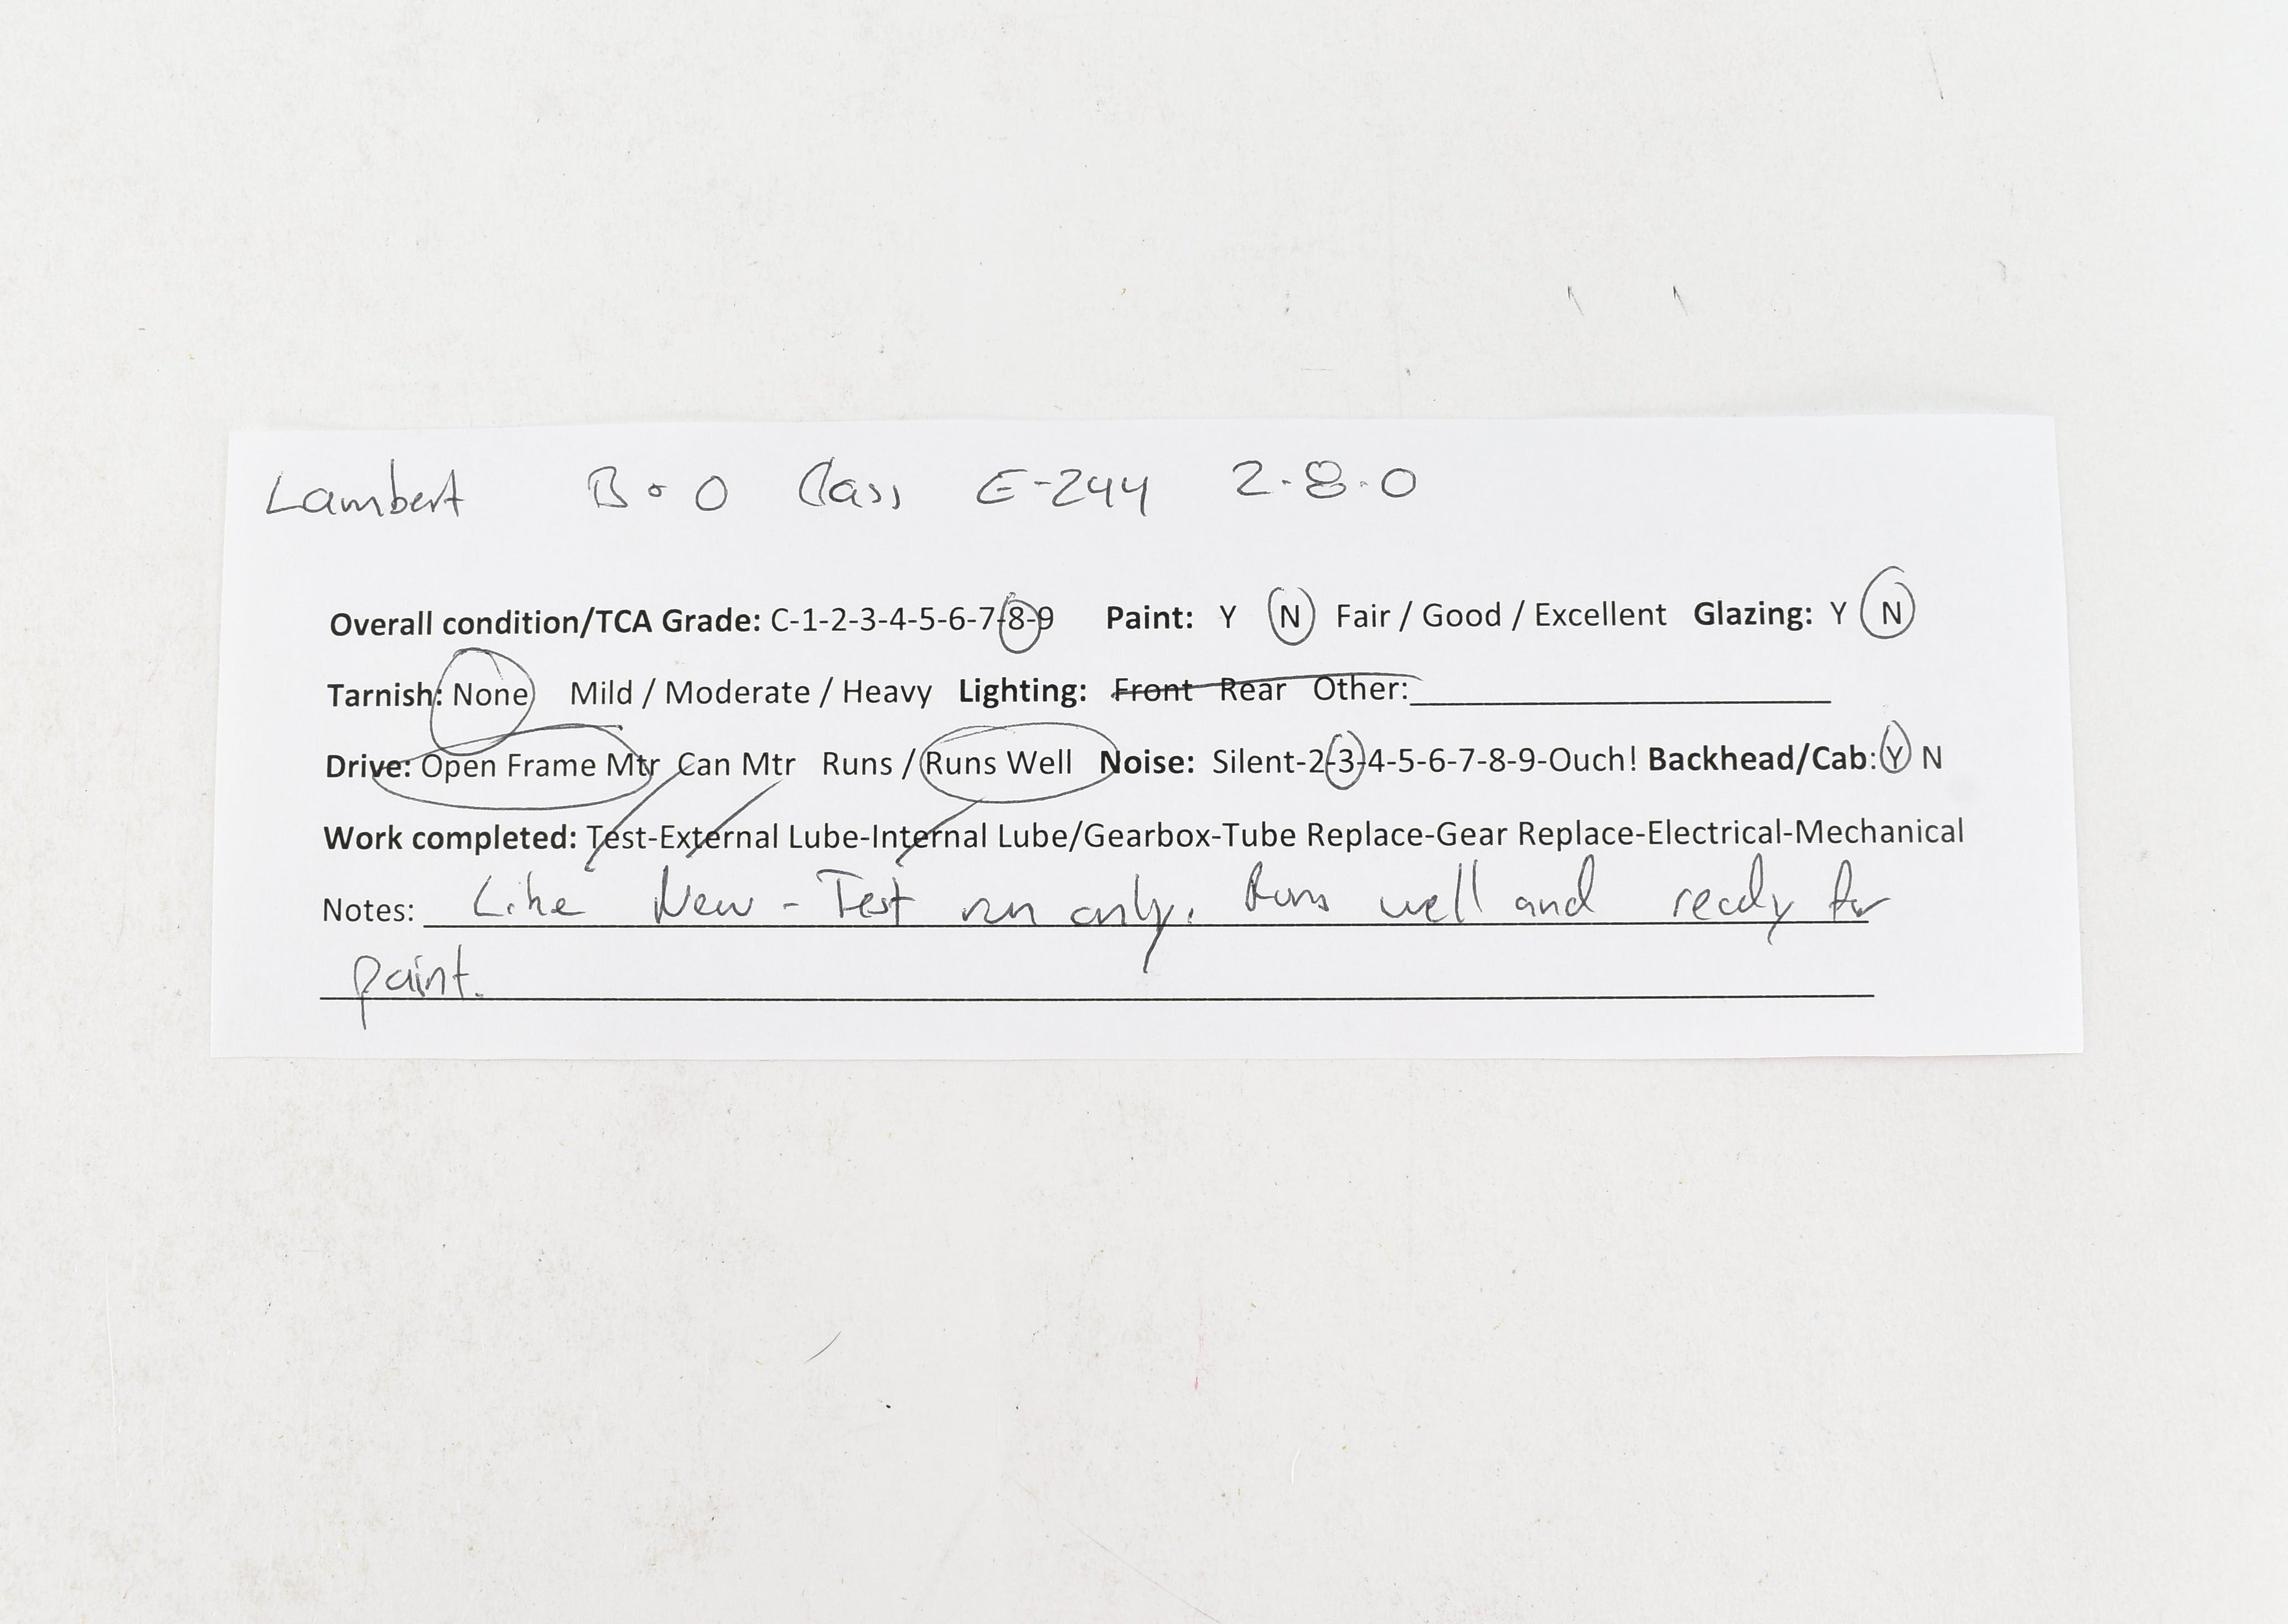 Lambert B&O Class E-244 2-8-0
Overall condition/TCA Grade: C-1-2-3-4-5-6-7-8-9 Paint: Y N Fair / Good / Excellent Glazing: Y N
Tarnish: None Mild / Moderate / Heavy Lighting: Front Rear Other:
Drive: Open Frame Mtr Can Mtr Runs / Runs Well Noise: Silent-2-3-4-5-6-7-8-9-Ouch! Backhead/Cab: Y N
Work completed: Test-External Lube-Internal Lube/Gearbox-Tube Replace-Gear Replace-Electrical-Mechanical
Notes: Like New - Test run only. Runs well and ready for
paint.